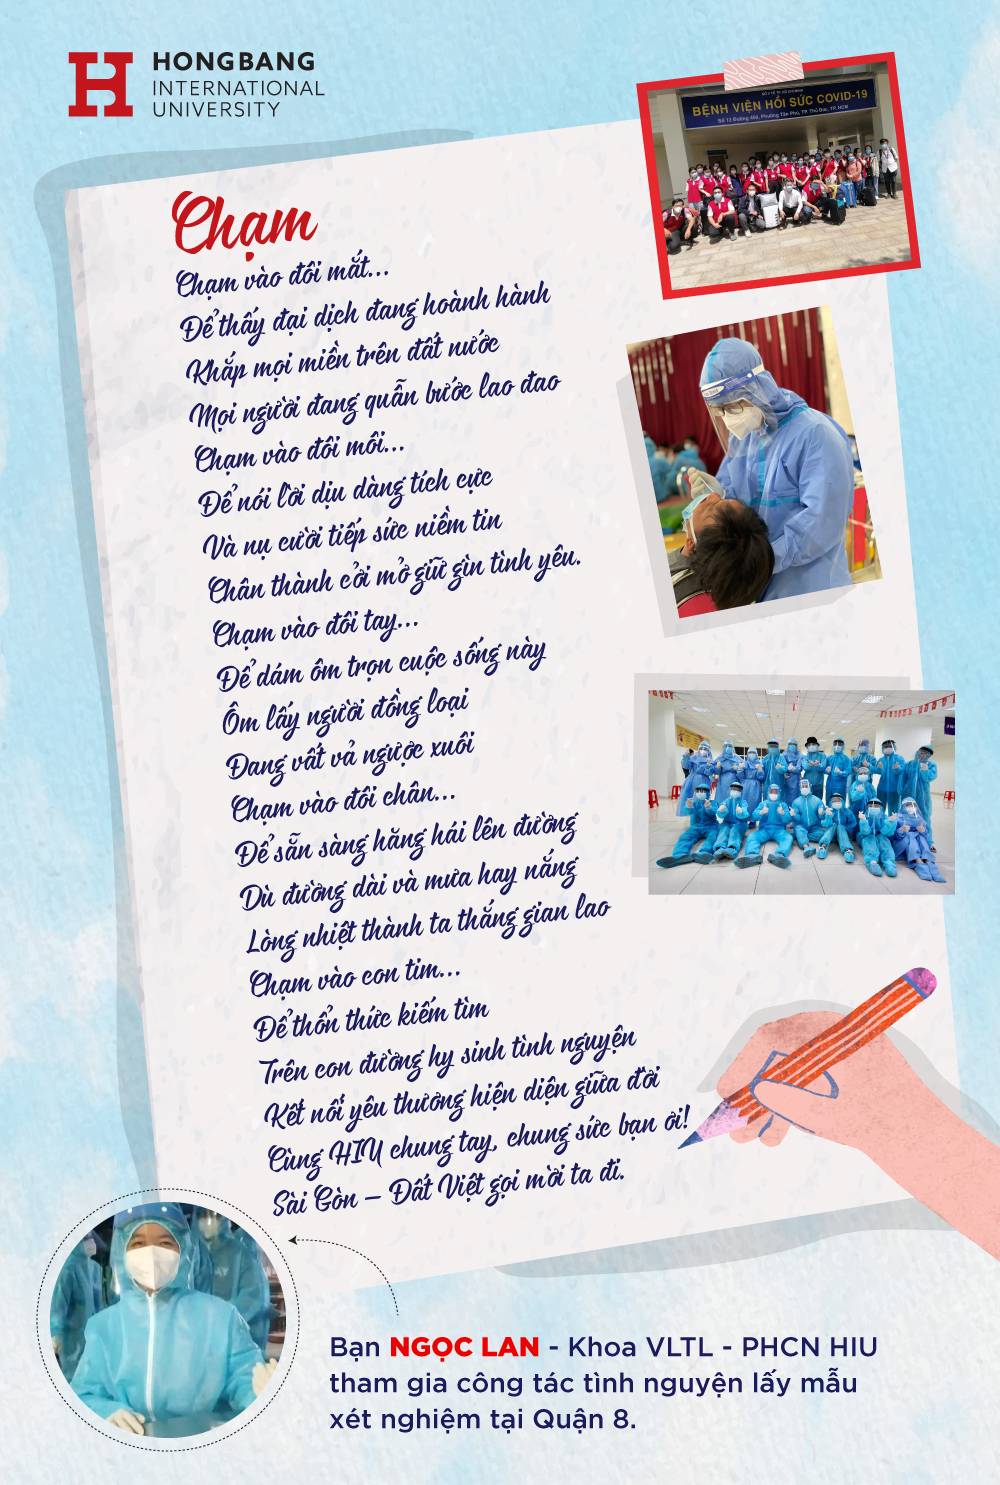 HONGBANG
INTERNATIONAL
UNIVERSITY
BỆNH VIỆN HỒI SỨC COVID-19
Số 12 Đường 400, Phường Tân Phú, TP. Thủ Đức, TP. HCM
Chạm
Chạm vào đôi mắt...
Để thấy đại dịch đang hoành hành
Khắp mọi miền trên đất nước
Mọi người đang quẫn bước lao đao
Chạm vào đôi môi...
Để nói lời dịu dàng tích cực
Và nụ cười tiếp sức niềm tin
Chân thành cởi mở giữ gìn tình yêu.
Chạm vào đôi tay...
Để dám ôm trọn cuộc sống này
Ôm lấy người đồng loại
Đang vất vả ngược xuôi
Chạm vào đôi chân...
Để sẵn sàng hăng hái lên đường
Dù đường dài và mưa hay nắng
Lòng nhiệt thành ta thắng gian lao
Chạm vào con tim...
Để thổn thức kiếm tìm
Trên con đường hy sinh tình nguyện
Kết nối yêu thương hiện diện giữa đời
Cùng HIU chung tay, chung sức bạn ơi!
Sài Gòn – Đất Việt gọi mời ta đi.
Bạn NGỌC LAN - Khoa VLTL - PHCN HIU
tham gia công tác tình nguyện lấy mẫu
xét nghiệm tại Quận 8.